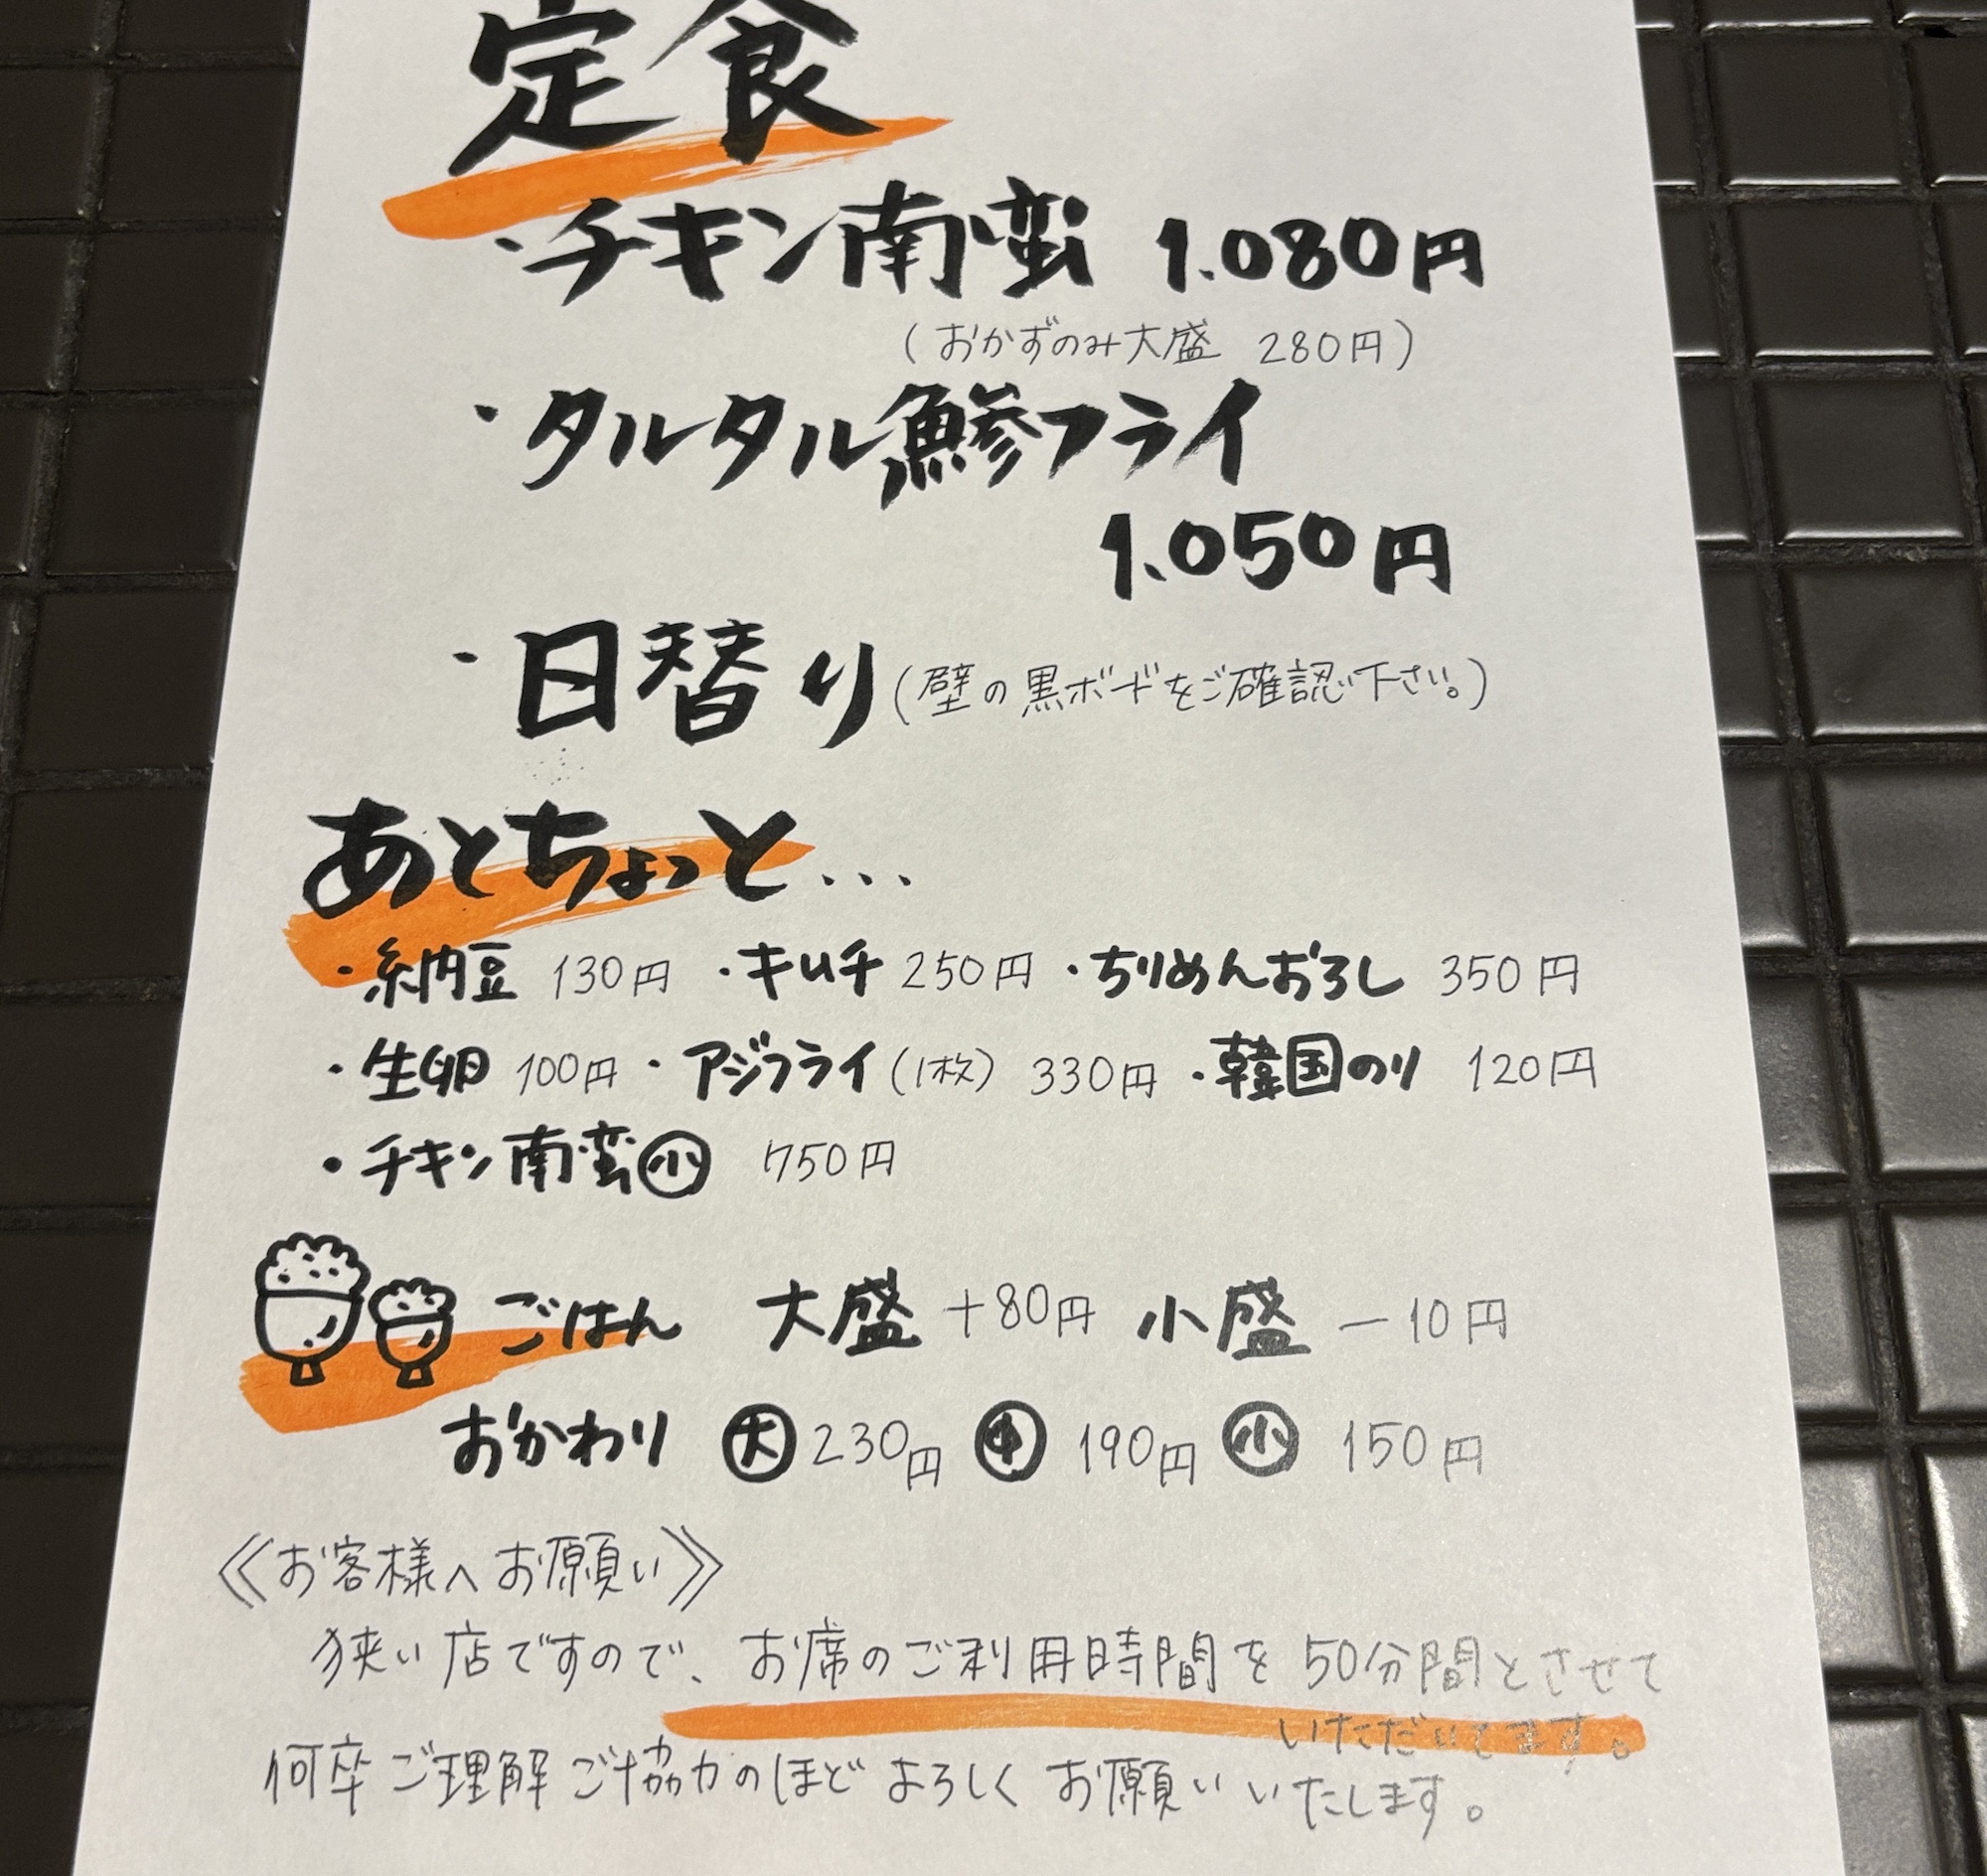 定食
・チキン南蛮 1.080円
(おかずのみ大盛 280円)
・タルタル鯵フライ
1.050円
・日替り(壁の黒ボードをご確認下さい。)
あとちょっと...
・納豆 130円 ・キムチ 250円 ・ちりめんおろし 350円
・生卵 100円 ・アジフライ(1枚) 330円 ・韓国のり 120円
・チキン南蛮㊙小 750円
ごはん 大盛 +80円 小盛 -10円
おかわり 大 230円 中 190円 小 150円
《お客様へお願い》
狭い店ですので、お席のご利用時間を50分間とさせて
いただいてます。
何卒ご理解ご協力のほどよろしくお願いいたします。